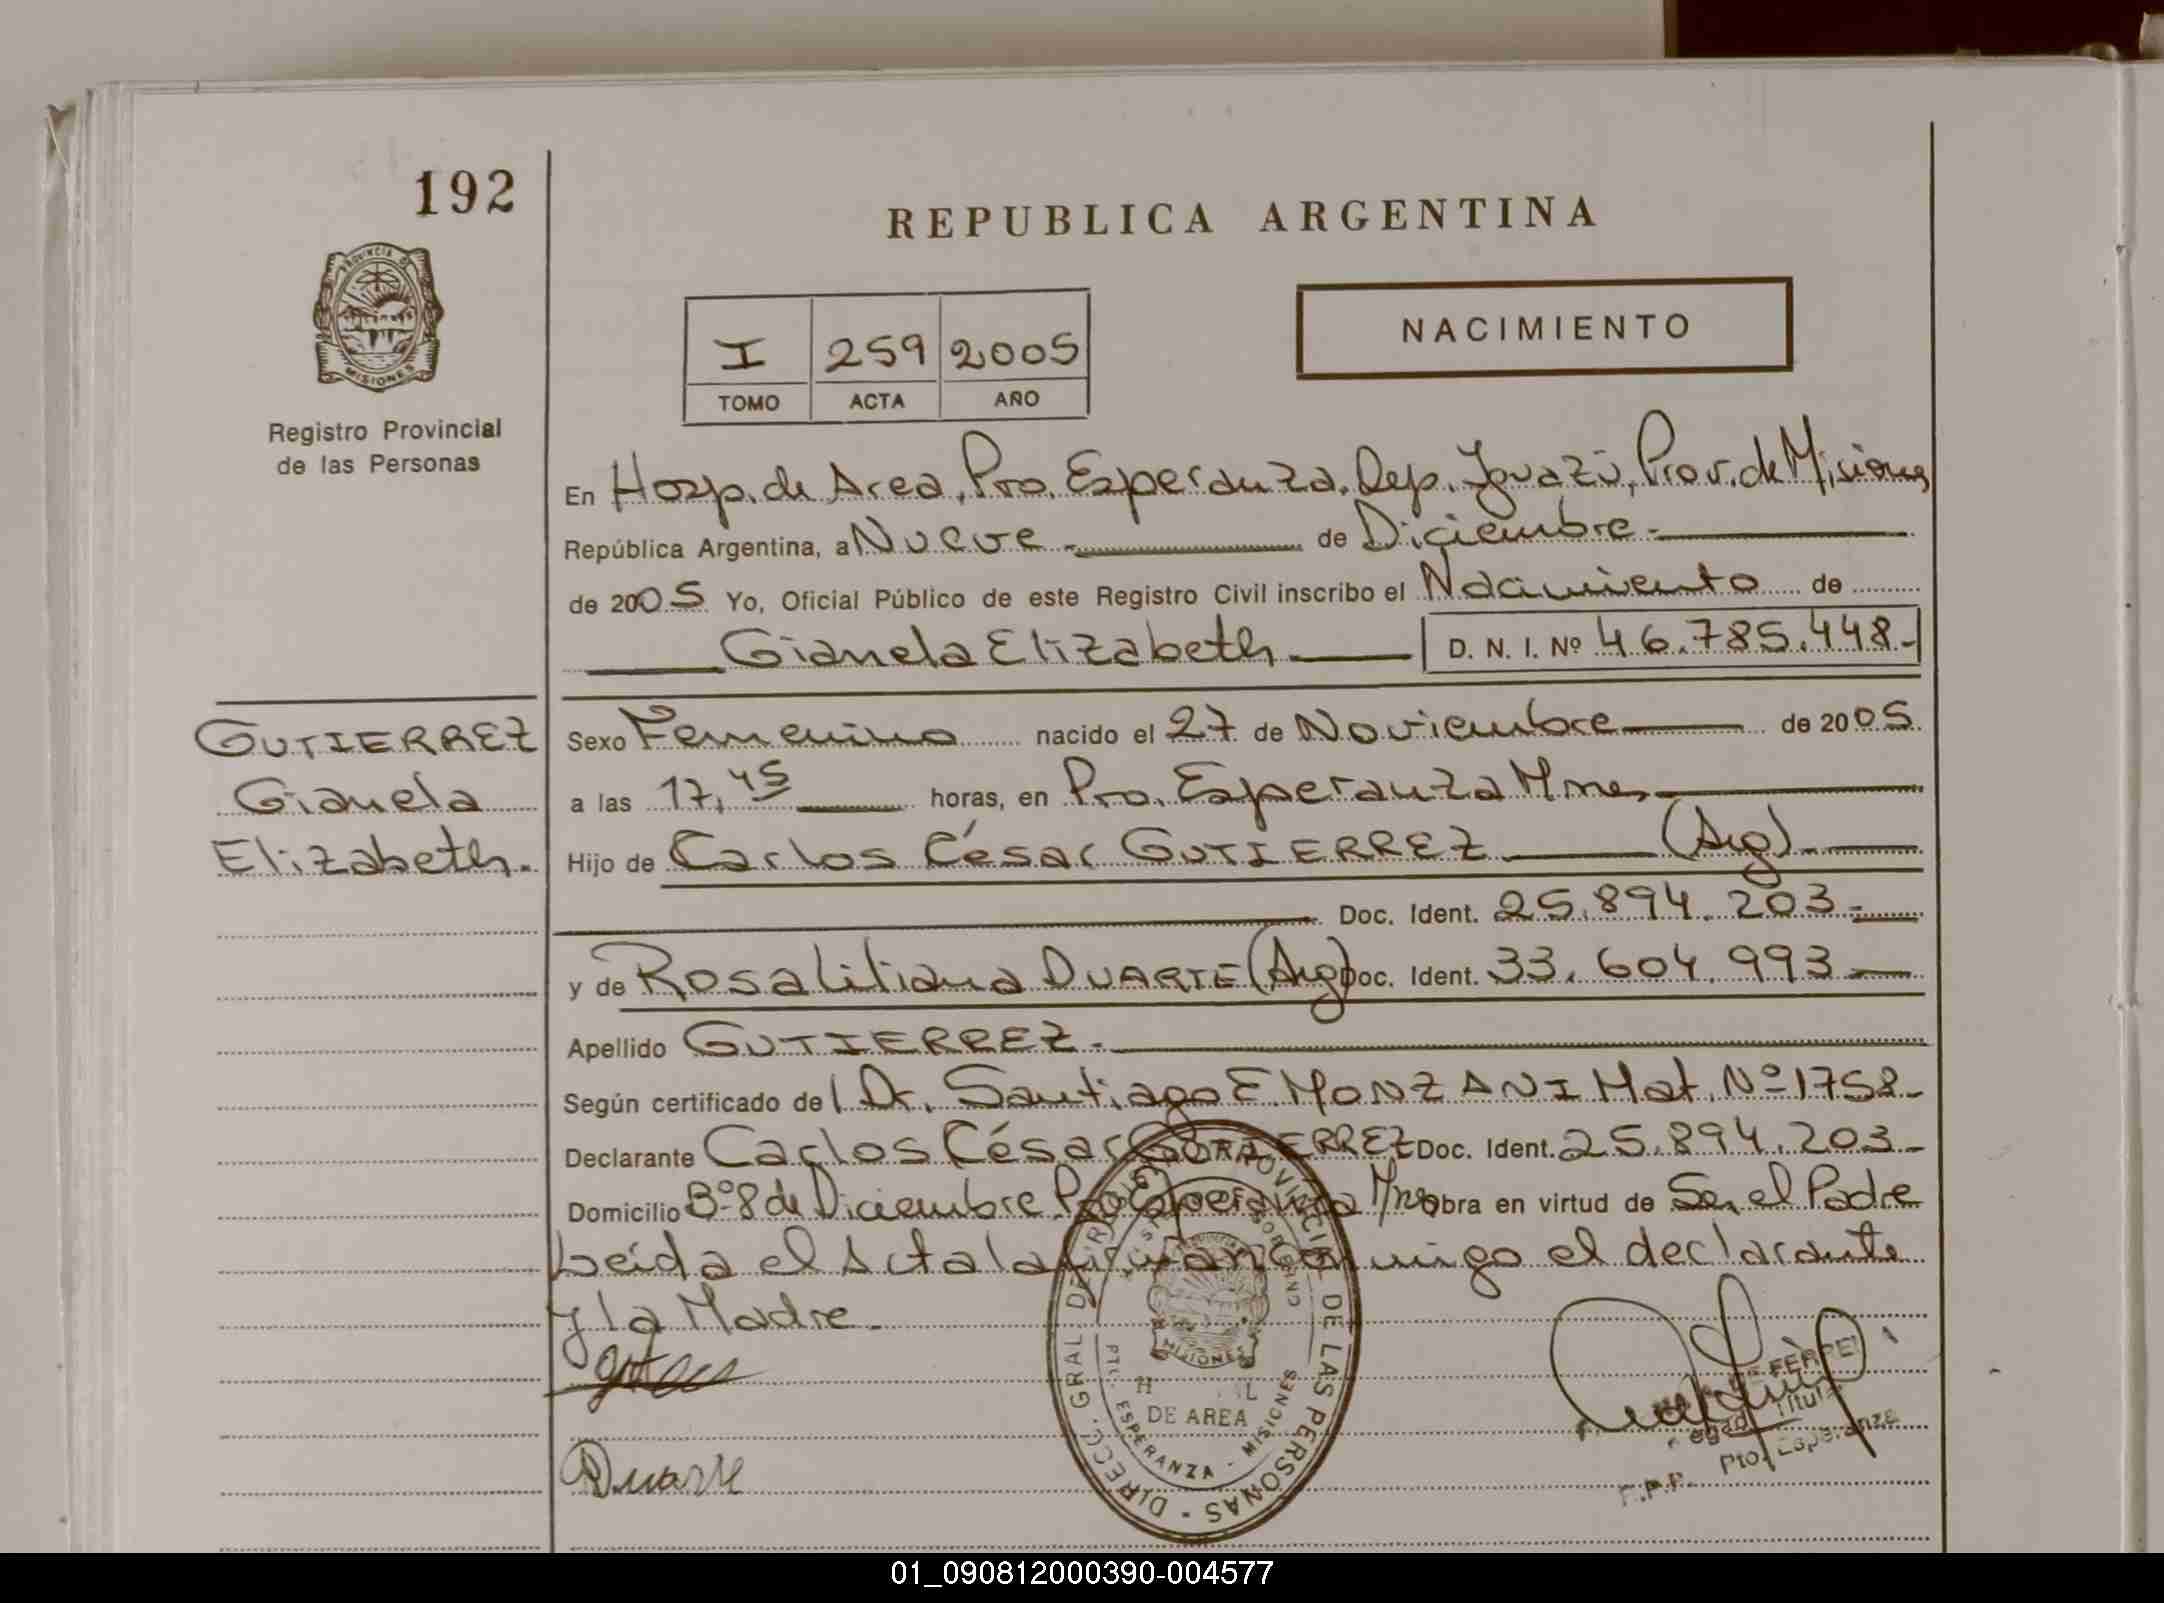 192
REPUBLICA ARGENTINA
PROVINCIA DE
MISIONES
Registro Provincial
de las Personas
NACIMIENTO
I 259 2005
TOMO ACTA AÑO
En Hosp. de Area, Pto. Esperanza, Dep. Iguazú, Prov. de Misiones
República Argentina, a Nueve.- de Diciembre.-
de 2005 Yo, Oficial Público de este Registro Civil inscribo el Nacimiento de
Gianela Elizabeth D. N. I. Nº 46.785.448.-
GUTIERREZ
Gianela
Elizabeth.
Sexo Femenino nacido el 27 de Noviembre de 2005.
a las 17,45 horas, en Pto. Esperanza Mnes.
Hijo de Carlos César GUTIERREZ (Arg).
Doc. Ident. 25.894.203.-
y de Rosa Liliana DUARTE (Arg) Doc. Ident. 33.604.993.-
Apellido GUTIERREZ.-
Según certificado del Dr. Santiago E MONZANI Mat. Nº 1758-
Declarante Carlos César GUTIERREZ Doc. Ident. 25.894.203-
Domicilio Bº 8 de Diciembre Pto Esperanza Mnes obra en virtud de Ser el Padre
Leída el Acta la firman conmigo el declarante
y la Madre.
Duarte
DIRECC. GRAL. DEL REGISTRO PROVINCIAL DE LAS PERSONAS
MISIONES
DE AREA
PTO. ESPERANZA - MISIONES
Titular
Pto. Esperanza
R.P.P.
01_090812000390-004577